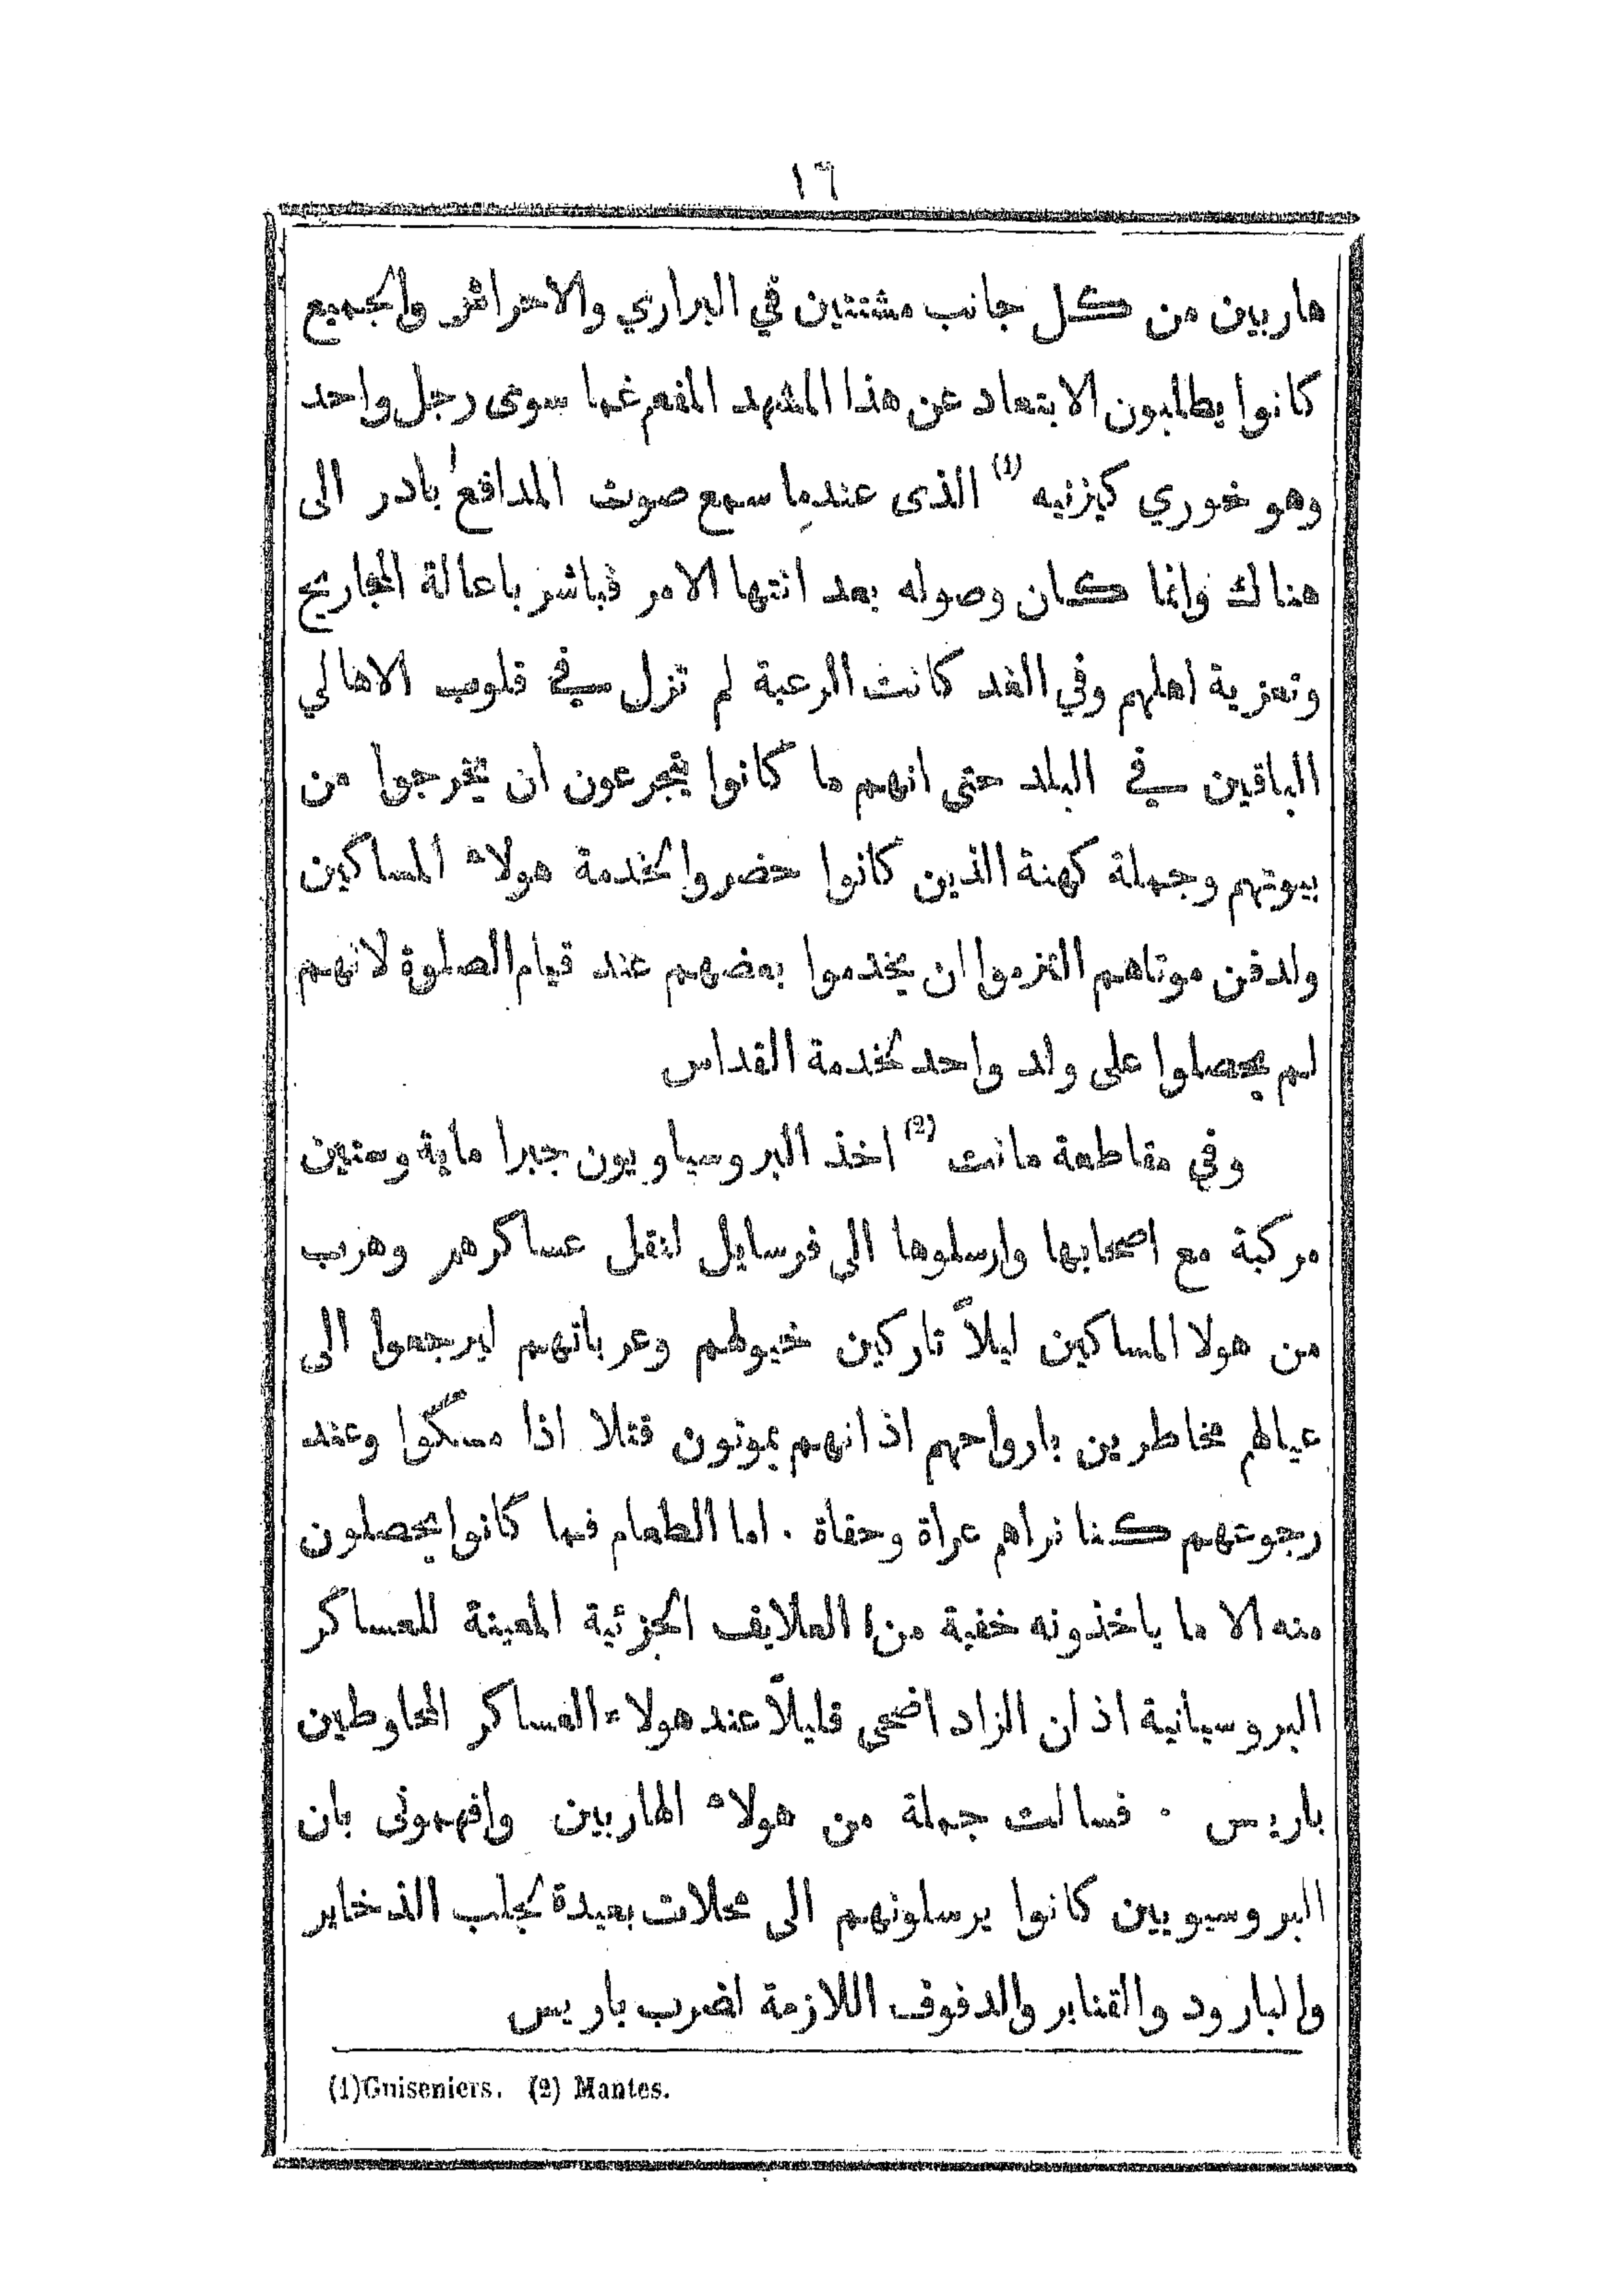 ١٦
هاربين من كل جانب مشتتين في البراري والاحراش والجميع
كانوا يطلبون الابتعاد عن هذا المشهد المفعم غما سوى رجل واحد
وهو خوري كيزنيه (1) الذى عندما سمع صوت المدافع بادر الى
هناك وانما كان وصوله بعد انتها الامر فباشر باعالة المجاريح
وتعزية اهلهم وفي الغد كانت الرعبة لم تزل في قلوب الاهالي
الباقين في البلد حتى انهم ما كانوا يتجرعون ان يخرجوا من
بيوتهم وجملة كهنة الذين كانوا حضروا لخدمة هولاء المساكين
ولدفن موتاهم التزموا ان يخدموا بعضهم عند قيام الصلوة لانهم
لم يحصلوا على ولد واحد لخدمة القداس
وفي مقاطعة مانت (2) اخذ البروسياويون جبرا ماية وستين
مركبة مع اصحابها وارسلوها الى فرسايل لنقل عساكرهم وهرب
من هولا المساكين ليلاً تاركين خيولهم وعرباتهم ليرجعوا الى
عيالهم مخاطرين بارواحهم اذ انهم يموتون قتلا اذا مسكوا وعند
رجوعهم كنا نراهم عراة وحفاة . اما الطعام فما كانوا يحصلون
منه الا ما ياخذونه خفية من العلايف الجزئية المعينة للعساكر
البروسيانية اذ ان الزاد اضحى قليلاً عند هولاء العساكر المحاوطين
باريس . فسالت جملة من هولاء الهاربين وافهمونى بان
البروسيويين كانوا يرسلونهم الى محلات بعيدة لجلب الذخاير
والبارود والقنابر والدفوف اللازمة لضرب باريس
(1) Guiseniers. (2) Mantes.